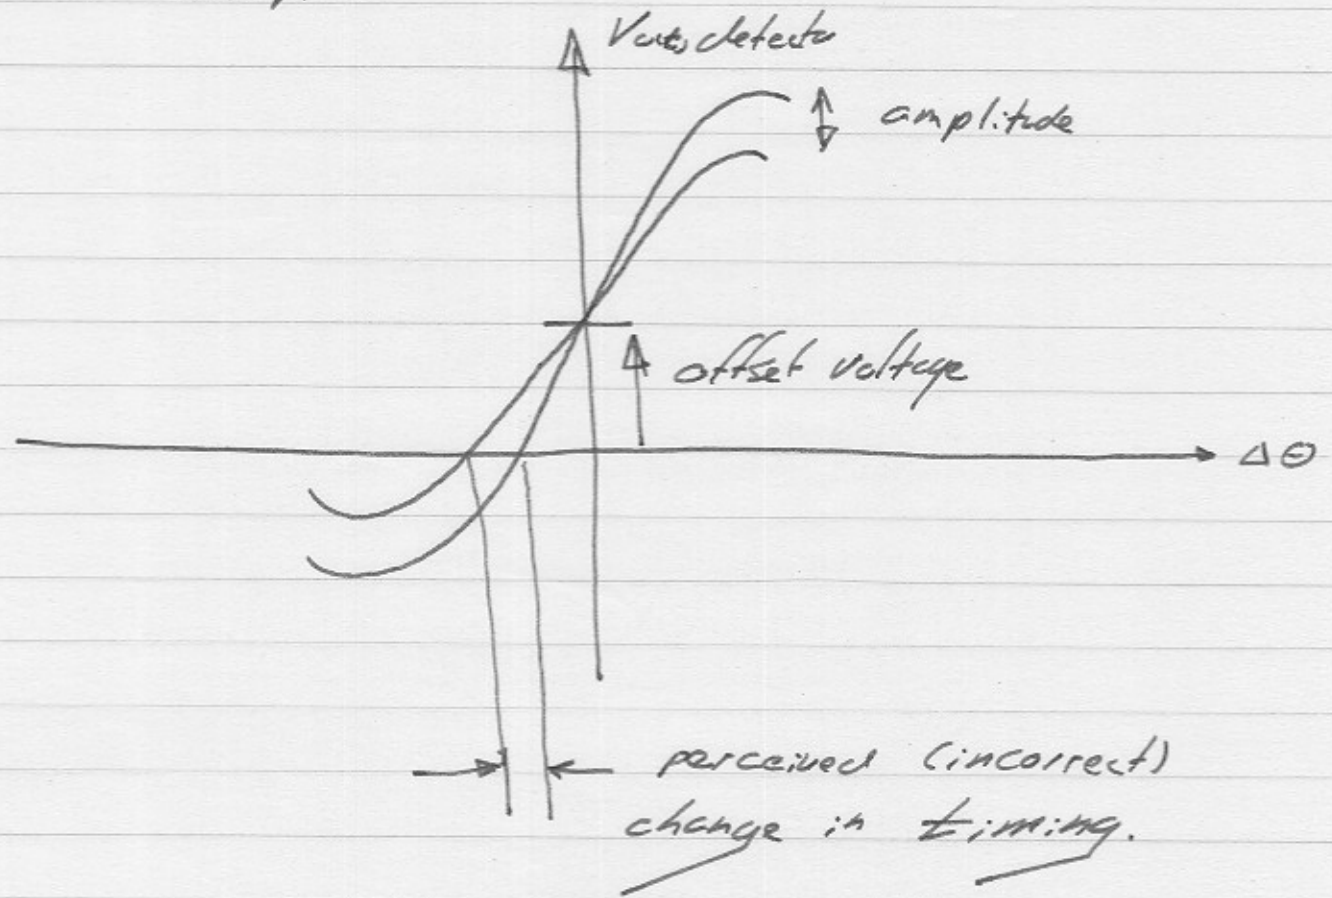 detector
amplitude
offset voltage
ΔΘ
perceived (incorrect)
change in timing.